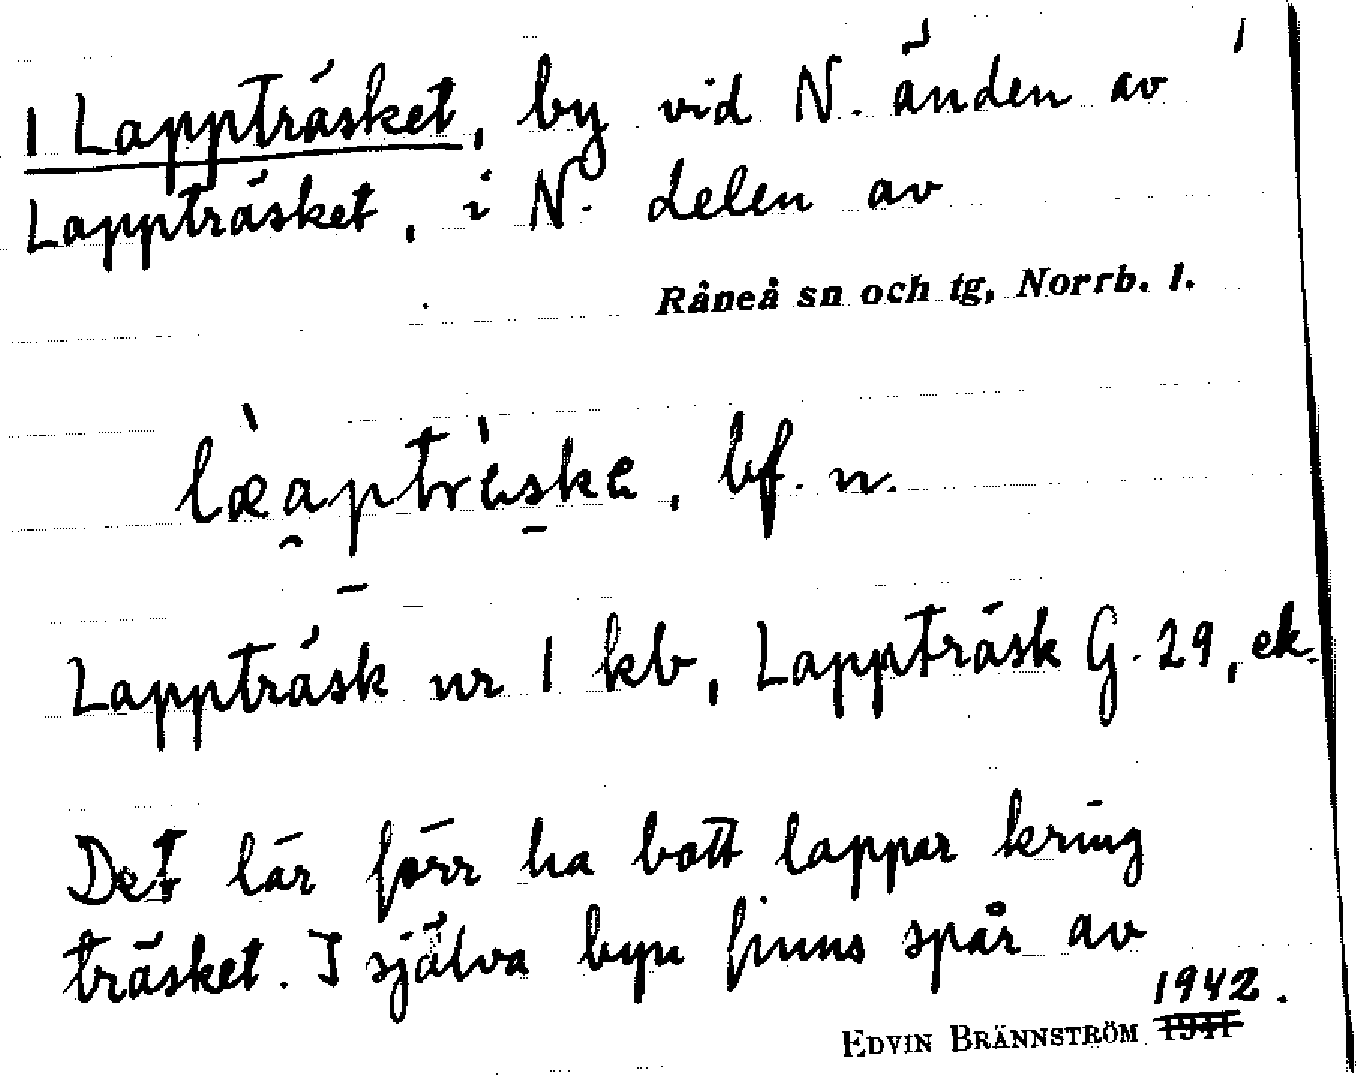 1 Lappträsket, by vid N. änden av
Lappträsket, i N. delen av
Råneå sn och tg, Norrb. l.
lœ̀aptrèske, bf. n.
Lappträsk nr 1 kb, Lappträsk G. 29, ek.
Det lär förr ha bott lappar kring
träsket. I själva byn finns spår av
1942.
EDVIN BRÄNNSTRÖM 1941